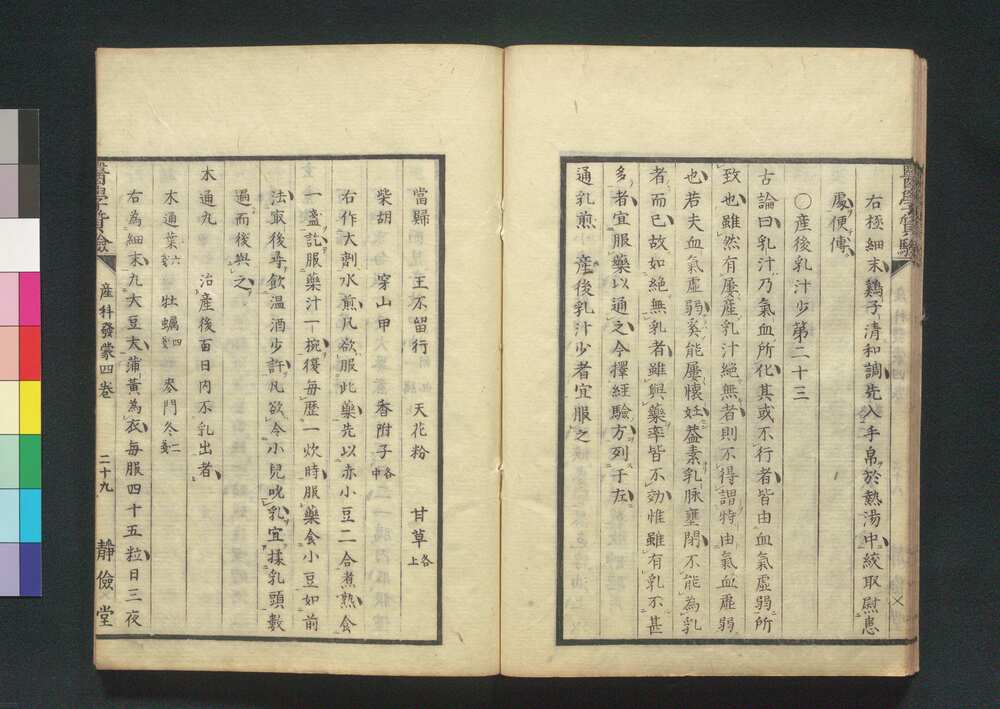 右極細末鷄子清和調先入手帛於熱湯中絞取慰患
處便傅
○産後乳汁少第二十三
古論曰乳汁乃氣血所化其或不行者皆由血氣虚弱所
致也雖然有屢産乳汁絶無者則不得謂特由氣血虚弱
也若夫血氣虚弱奚能屢懷妊葢素乳脉壅閉不能為乳
者而已故如絶無乳者雖與藥率皆不効惟雖有乳不甚
多者宜服藥以通之今擇經驗方列于左
通乳煎 産後乳汁少者宜服之
當歸 王不留行 天花粉 甘草各上
柴胡 穿山甲 香附子各中
右作大劑水煎凡欲服此藥先以赤小豆二合煮熟食
一盞訖服藥汁一椀復毎歴一炊時服藥食小豆如前
法取後尋飲温酒少許凡欲令小兒吮乳宜揉乳頭數
遍而後與之
木通丸 治産後百日内不乳出者
木通葉六 牡蠣四 麥門冬二
右為細末丸大豆大蒲黄為衣毎服四十五粒日三夜
醫學質驗 産科發蒙四卷 二十九 靜儉堂